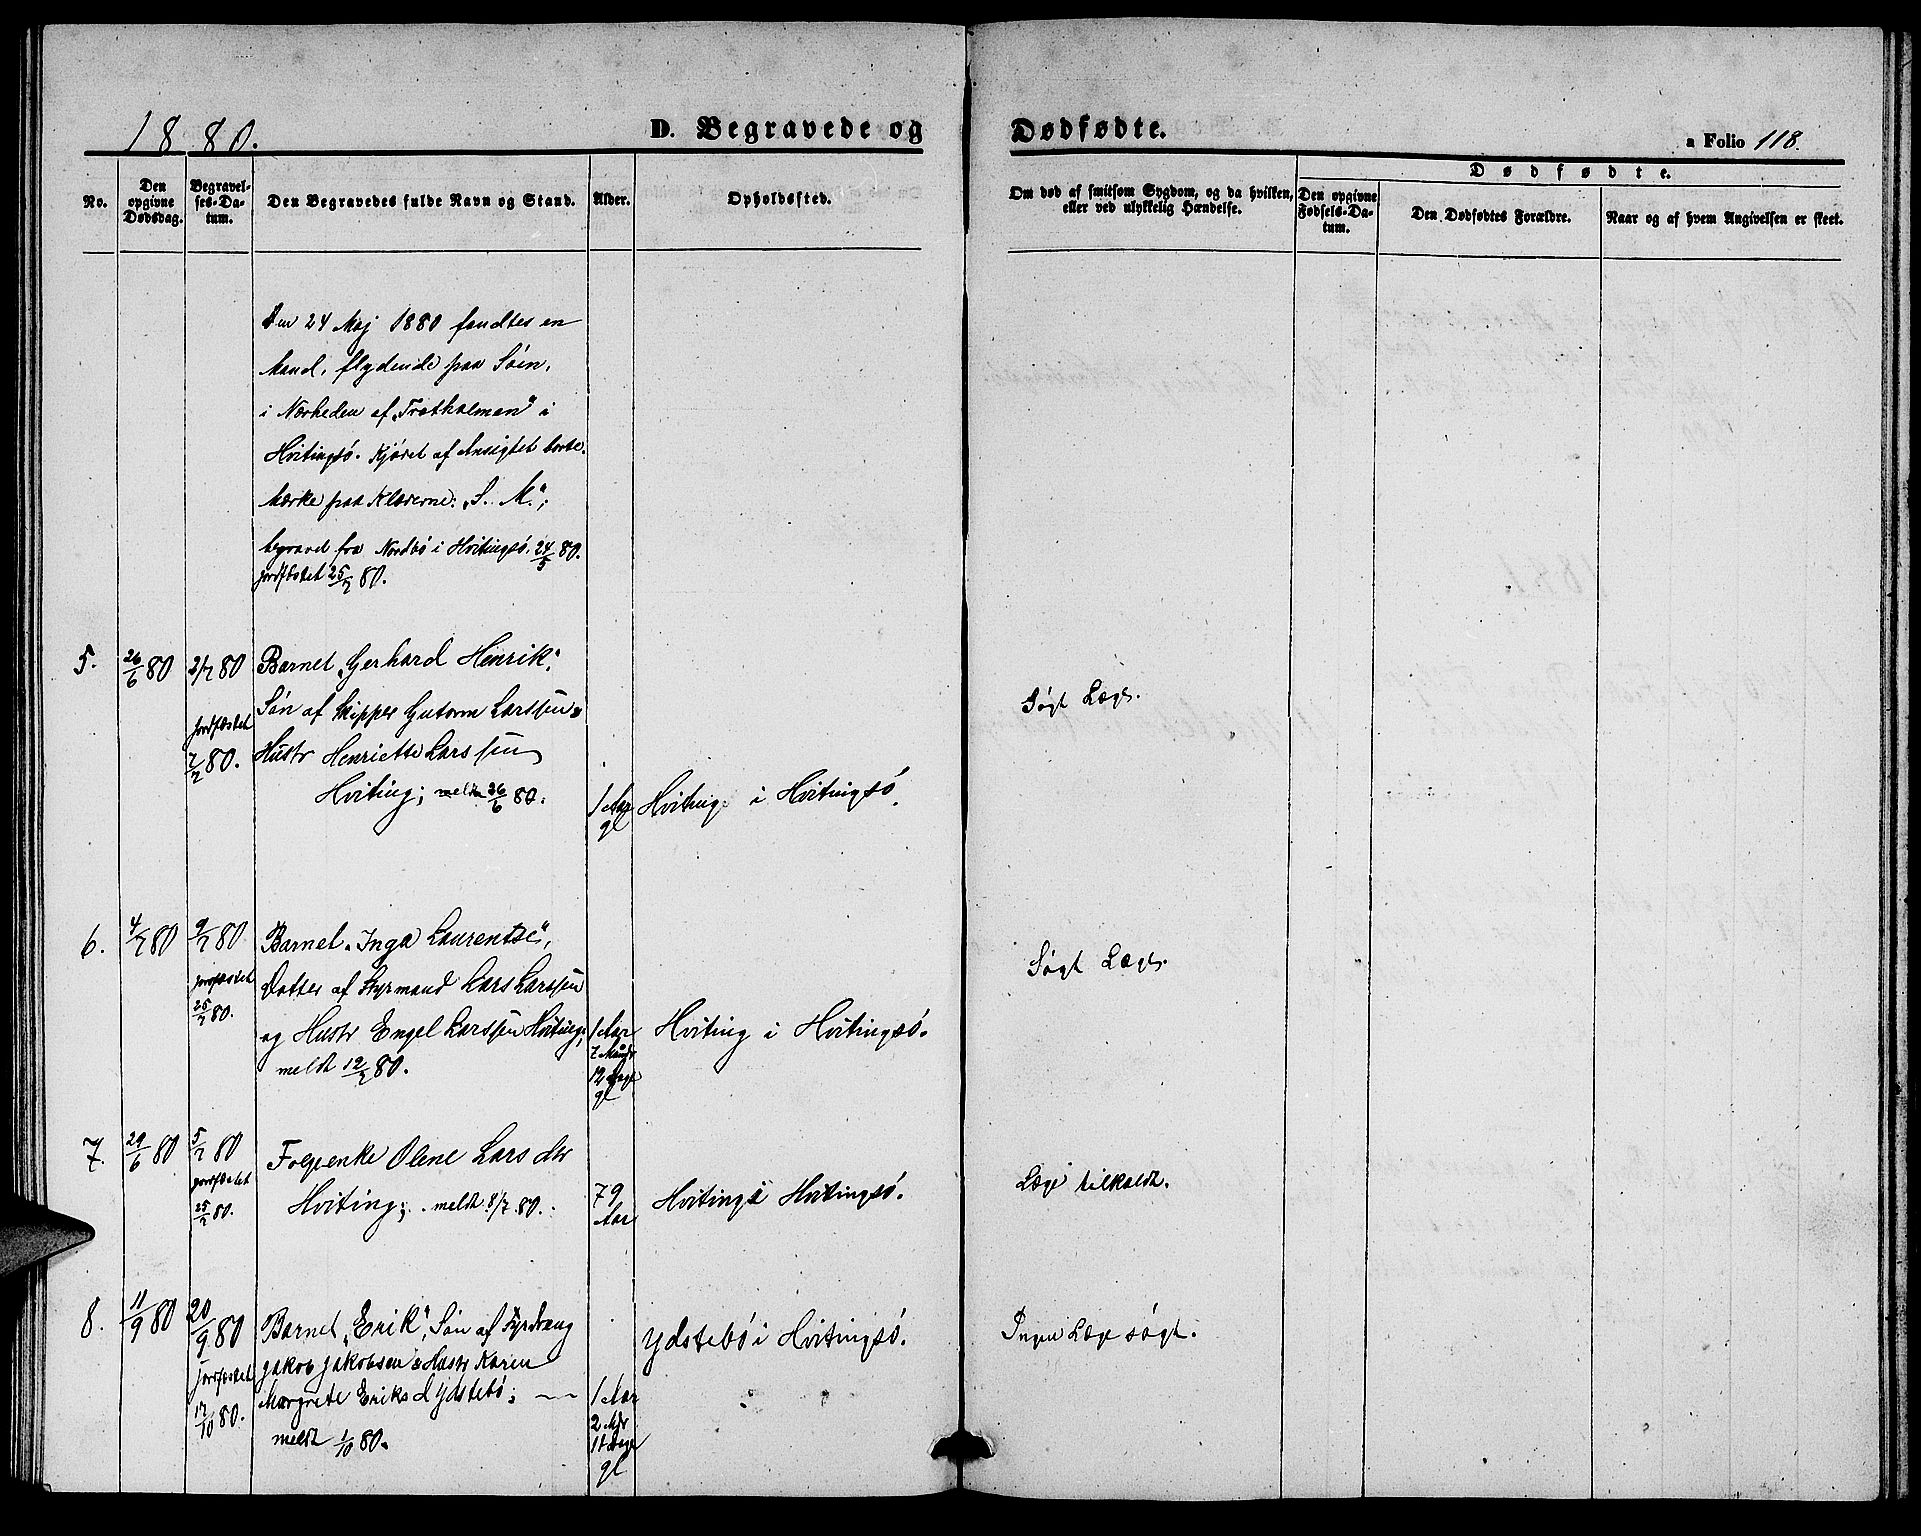 1880.
D. Begravede og Dødfødte.
a Folio 118.
No.
Den opgivne Dødsdag.
Begravelses-Datum.
Den Begravedes fulde Navn og Stand.
Alder.
Opholdssted.
Om død af smitsom Sygdom, og da hvilken, eller ved ulykkelig Hændelse.
Dødfødte.
Den opgivne Fødsels-Datum.
Den Dødfødtes Forældre.
Naar og af hvem Angivelsen er skeet.
Den 24 Maj 1880 fandtes en
Mand, flydende paa Søen,
i Nærheden af „Tratholmen“ i
Hvitingsö. Kjødet af Ansigtet borte.
Mærke paa Klæderne: „S. M.“;
begravet fra Nordbö i Hvitingsö. 24/5 80.
jordfæstet 25/7 80.
5. 26/6 80 2/7 80 Barnet „Gerhard Henrik“,
Søn af Skipper Gutorm Larssen &
Søgt Læge.
jordfæstet
7/7 80. Hustr Henriette Larssen
Hviting; meldt 26/6 80. 1 Aar Hviting i Hvitingsö.
gl
6. 4/7 80 9/7 80 Barnet „Inga Laurentse“,
Søgt Læge.
jordfæstet Datter af Styrmand Lars Larssen
25/7 80.
og Hustr Engel Larssen Hviting; 1 Aar Hviting i Hvitingsö.
meldt 12/7 80. 7 Maan
12 Dage
gl
7. 29/6 80 5/7 80 Folgeenke Olene Larsdtr
jordfæstet Læge tilkaldt.
25/7 80. Hviting; meldt 8/7 80. 79 Aar Hviting i Hvitingsö.
8. 11/9 80 20/9 80 Barnet „Erik“, Søn af Fyrdreng Ydstebö i Hvitingsö. Ingen Læge søgt.
jordfæstet Jakob Jakobsen & Hustr Karen
17/10 80. Margrete Eriksd Ydstebö; 1 Aar
meldt 1/10 80. 2 Mdr
11 Dage
gl